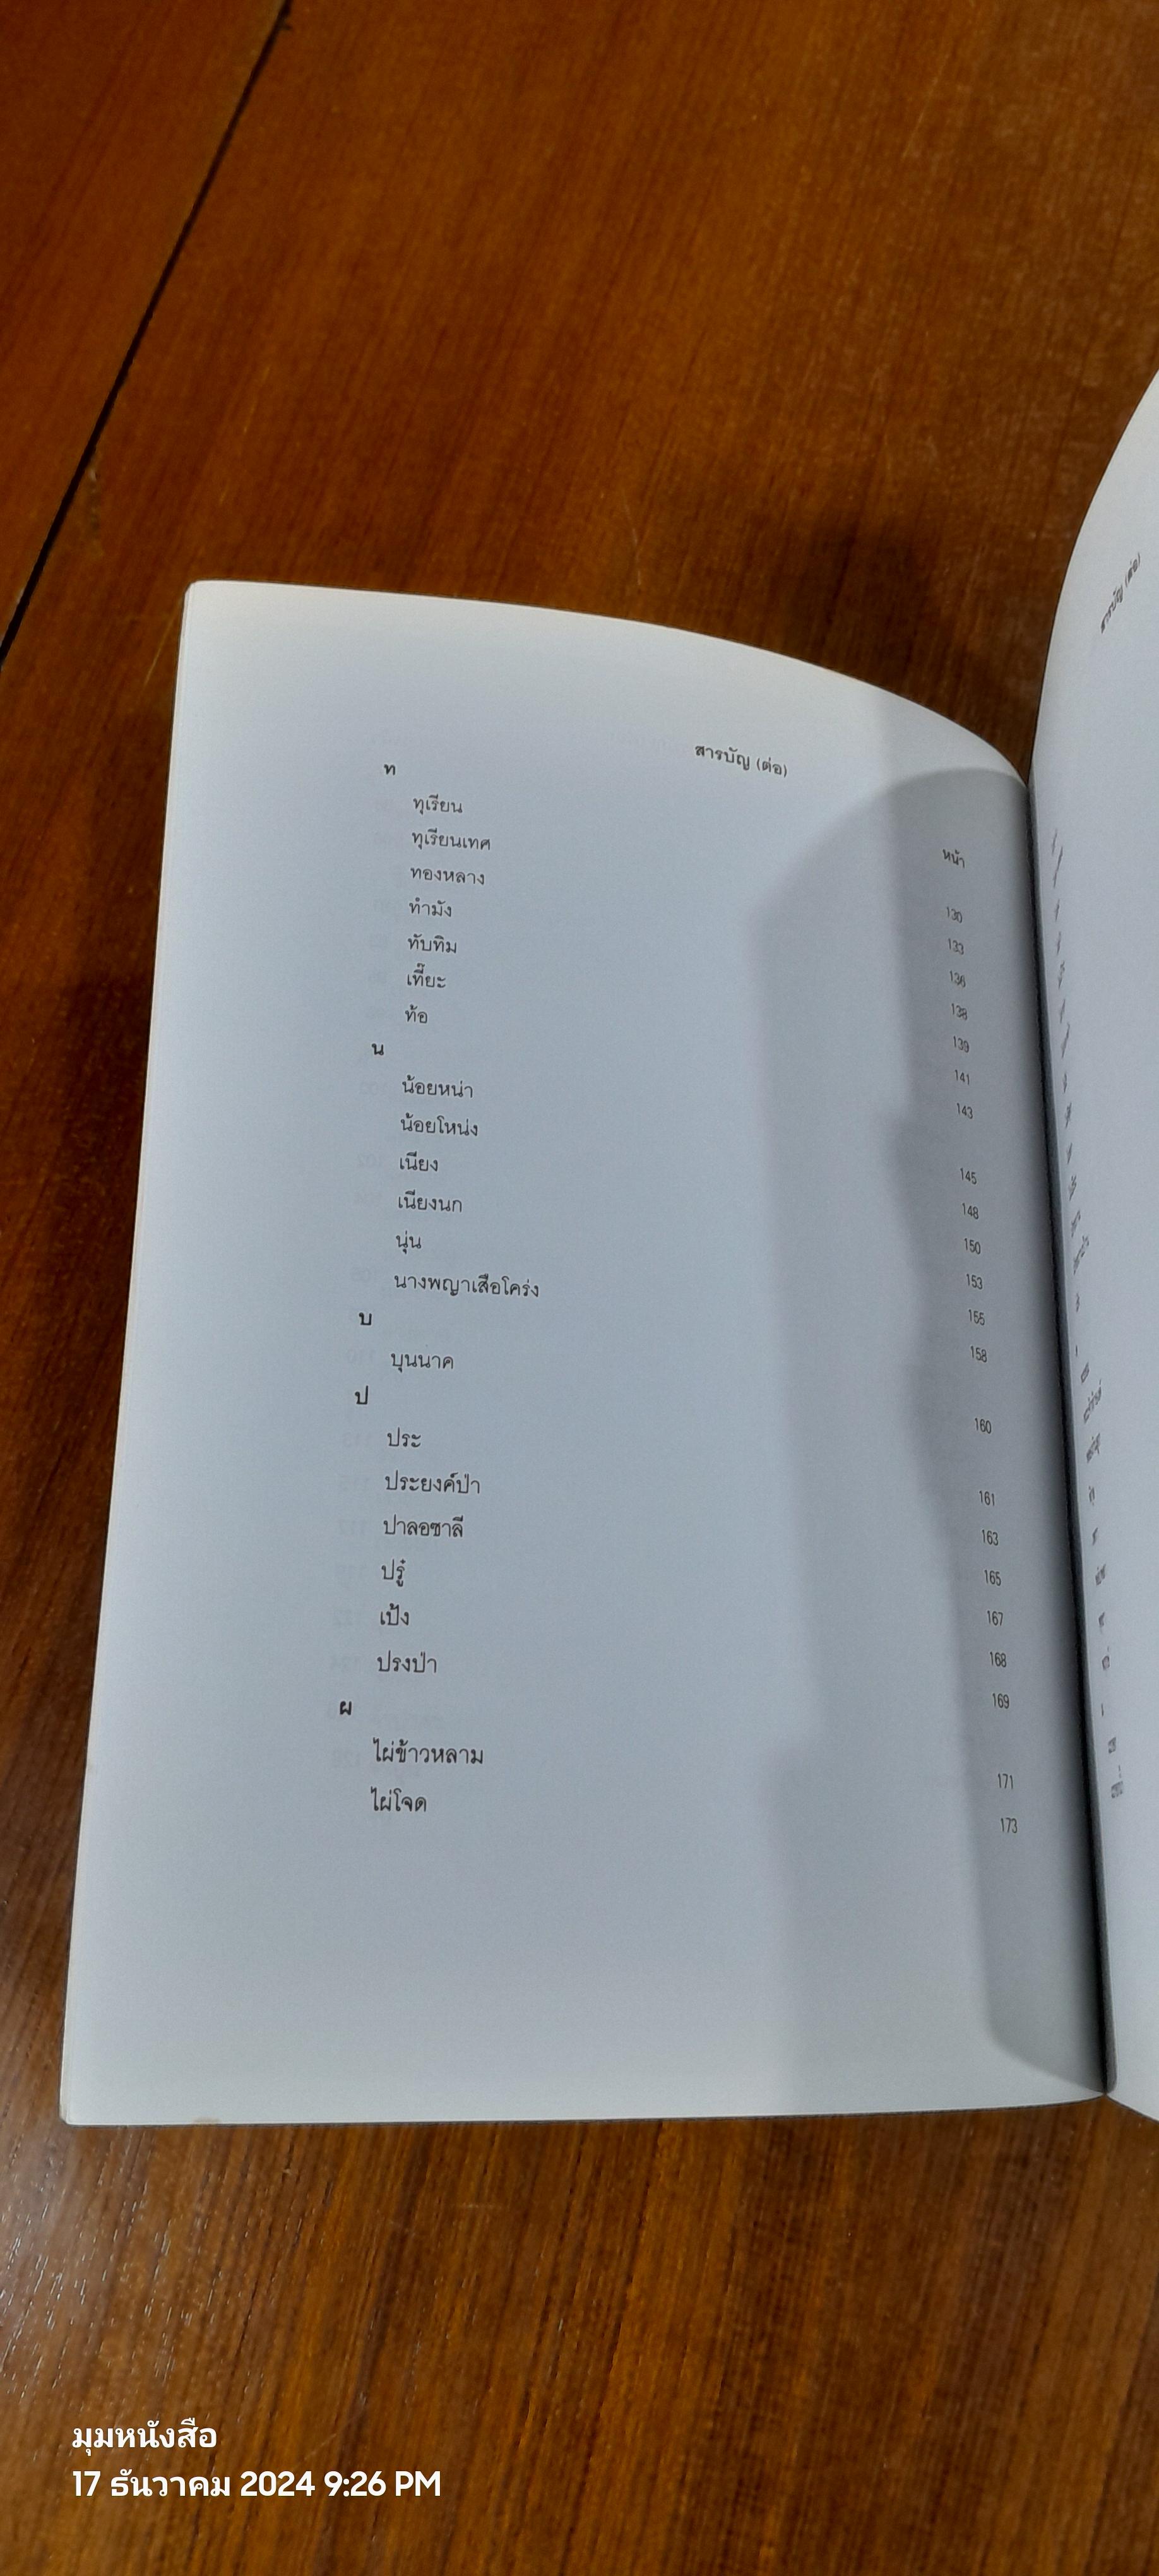 สารบัญ (ต่อ)
หน้า
ท
ทุเรียน 130
ทุเรียนเทศ 133
ทองหลาง 136
ทำมัง 138
ทับทิม 139
เที๊ยะ 141
ท้อ 143
น
น้อยหน่า 145
น้อยโหน่ง 148
เนียง 150
เนียงนก 153
นุ่น 155
นางพญาเสือโคร่ง 158
บ
บุนนาค 160
ป
ประ 161
ประยงค์ป่า 163
ปาลอซาลี 165
ปรู๋ 167
เป้ง 168
ปรงป่า 169
ผ
ไผ่ข้าวหลาม 171
ไผ่โจด 173
สารบัญ (ต่อ)
มุมหนังสือ
17 ธันวาคม 2024 9:26 PM